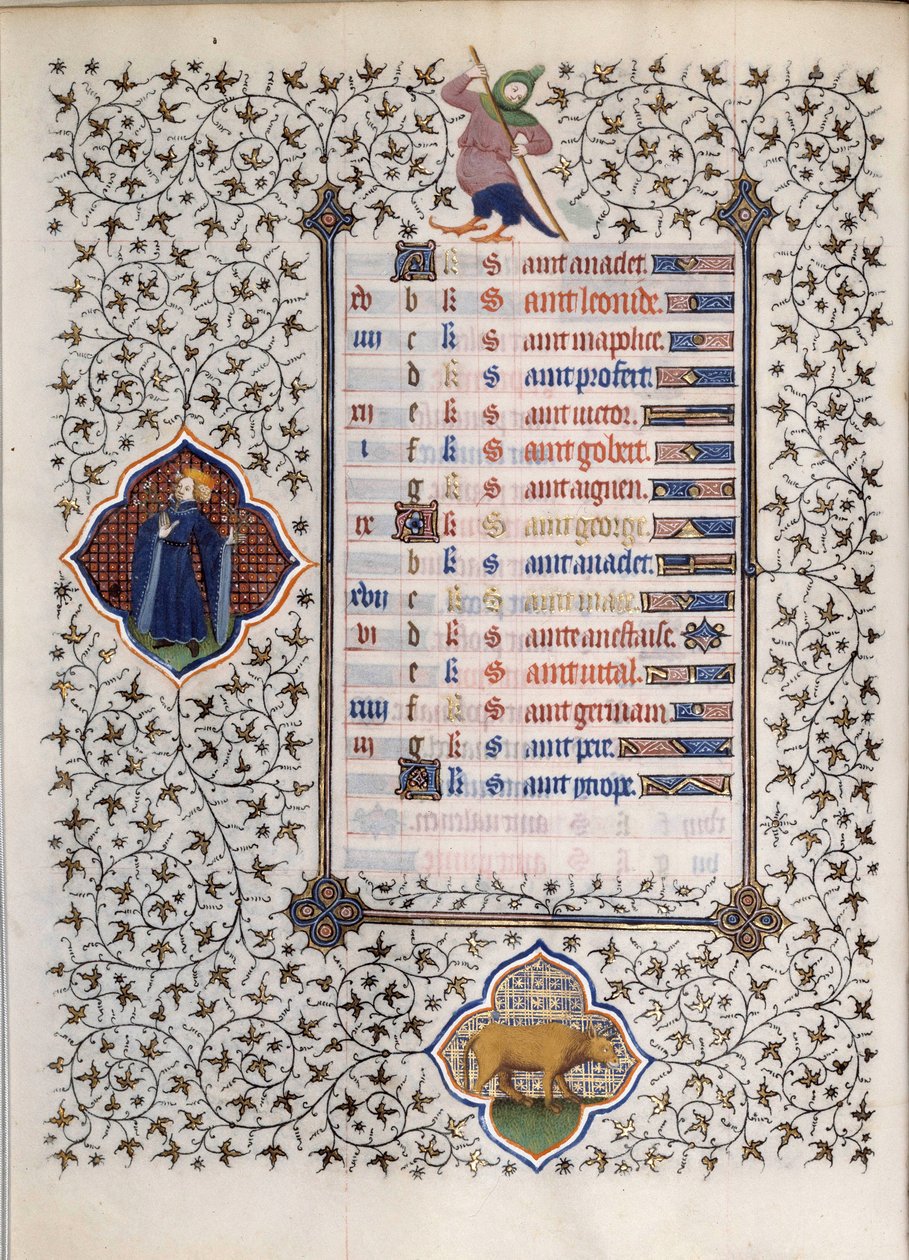 A k Saint anaclet.
xv b k Saint leonide.
iiij c k Saint mapolice.
d k Saint profect.
xij e k Saint victor.
i f k Saint gobert.
g k Saint aignen.
ix A k Saint george.
b k Saint anaclet.
xvij c k Saint marc.
vi d k Sainte anestaise.
e k Saint vital.
xiiij f k Saint germain.
iij g k Saint
A k Saint ytrope.